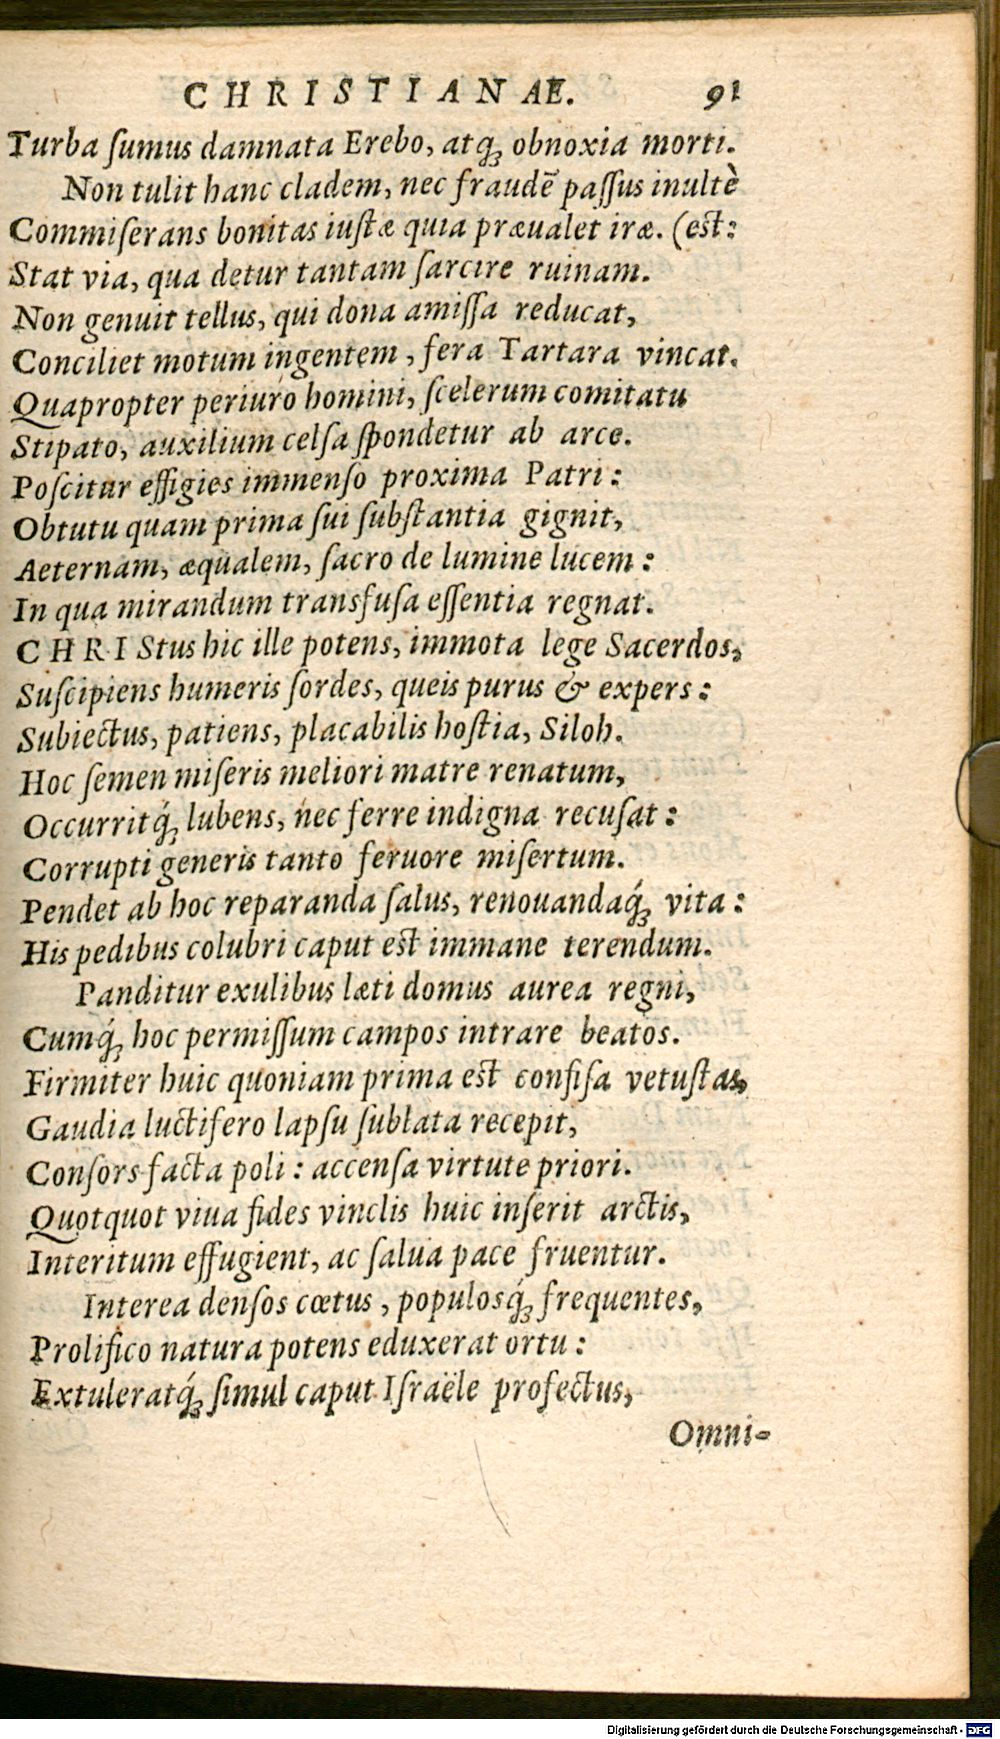 CHRISTIANAE. 91
Turba ſumus damnata Erebo, atq́; obnoxia morti.
Non tulit hanc cladem, nec fraudē paſſus inultè
Commiſerans bonitas iuſtæ quia præualet iræ. (est:
Stat via, qua detur tantam ſarcire ruinam.
Non genuit tellus, qui dona amiſſa reducat,
Conciliet motum ingentem, fera Tartara vincat.
Quapropter periuro homini, ſcelerum comitatu
Stipato, auxilium celſa ſpondetur ab arce.
Poſcitur effigies immenſo proxima Patri:
Obtutu quam prima ſui ſubſtantia gignit,
Aeternam, æqualem, ſacro de lumine lucem:
In qua mirandum transfuſa eſſentia regnat.
CHRIStus hic ille potens, immota lege Sacerdos,
Suſcipiens humeris ſordes, queis purus & expers:
Subiectus, patiens, placabilis hoſtia, Siloh.
Hoc ſemen miſeris meliori matre renatum,
Occurritq́; lubens, nec ferre indigna recuſat:
Corrupti generis tanto feruore miſertum.
Pendet ab hoc reparanda ſalus, renouandaq́; vita:
His pedibus colubri caput eſt immane terendum.
Panditur exulibus læti domus aurea regni,
Cumq́; hoc permiſſum campos intrare beatos.
Firmiter huic quoniam prima eſt confiſa vetuſtas,
Gaudia luctifero lapſu ſublata recepit,
Conſors facta poli: accenſa virtute priori.
Quotquot viua fides vinclis huic inſerit arctis,
Interitum effugient, ac ſalua pace fruentur.
Interea denſos cœtus, populosq́; frequentes,
Prolifico natura potens eduxerat ortu:
Extuleratq́; ſimul caput Iſraële profectus,
Omni-
Digitalisierung gefördert durch die Deutsche Forschungsgemeinschaft - DFG